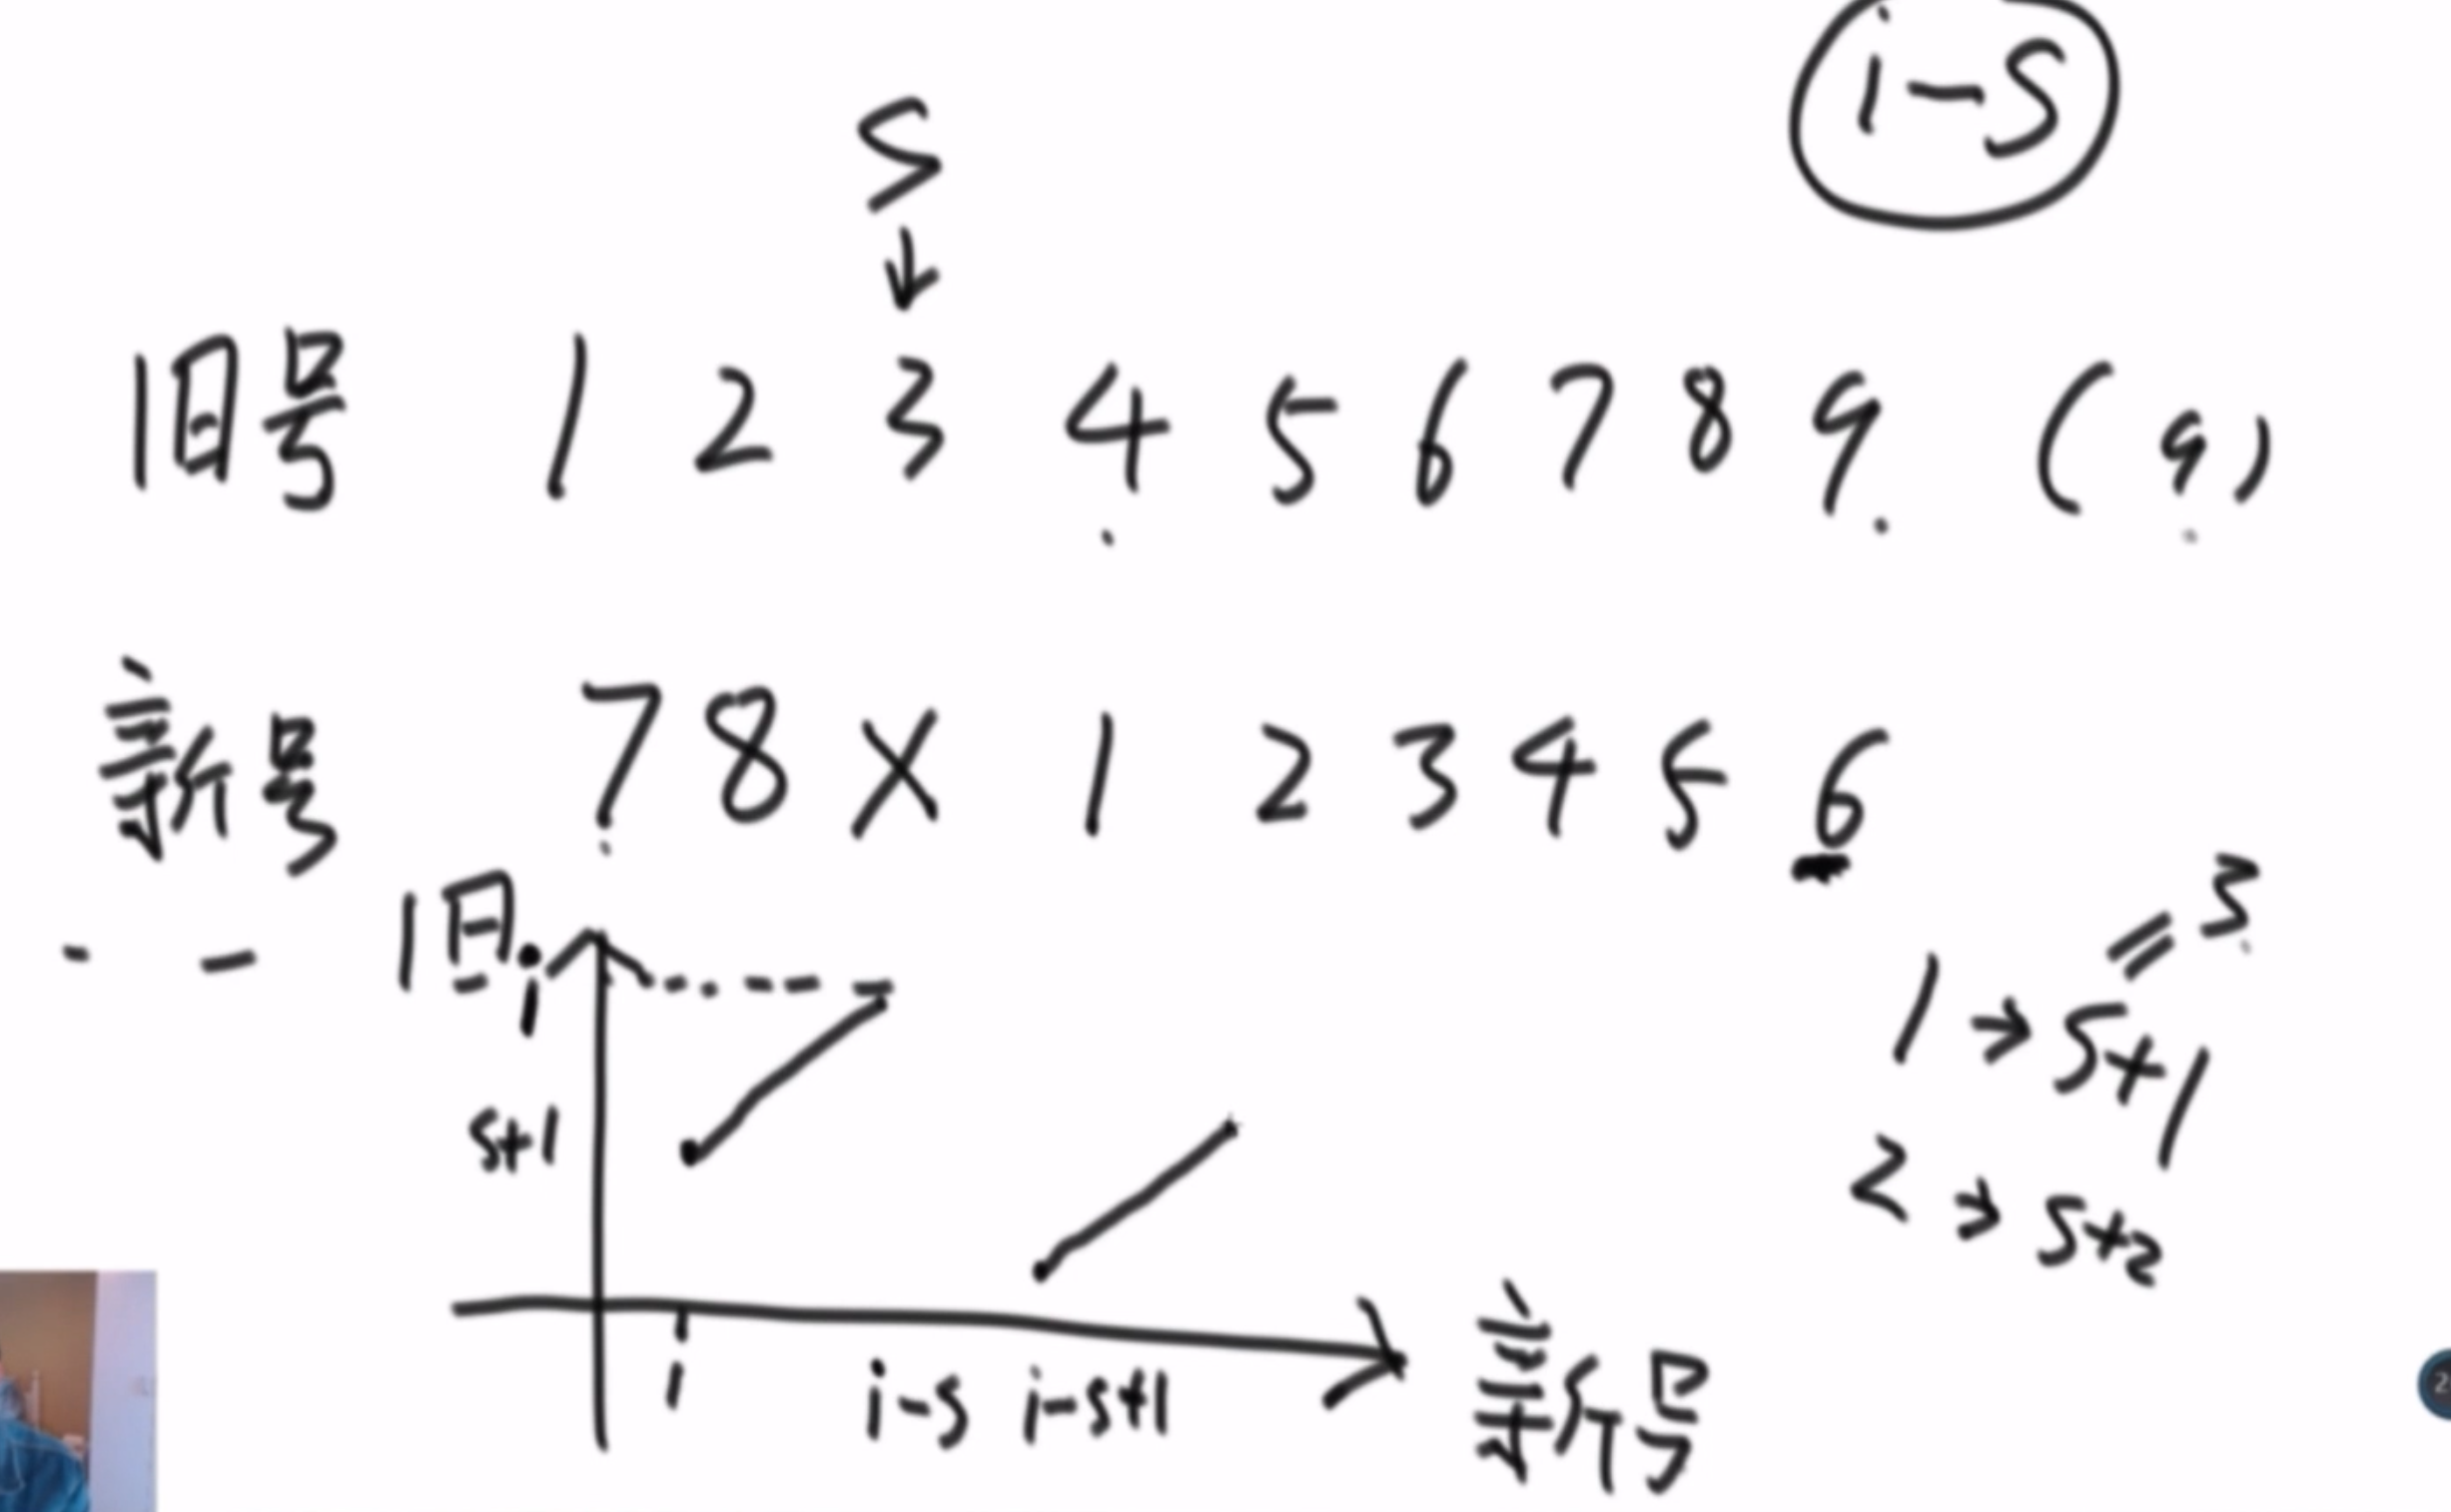 i-S
S
↓
旧号 1 2 3 4 5 6 7 8 9 (9)
新号 7 8 X 1 2 3 4 5 6
旧
i
S+1
1 i-S i-S+1 新号
= 3
1 → S+1
2 → S+2
2